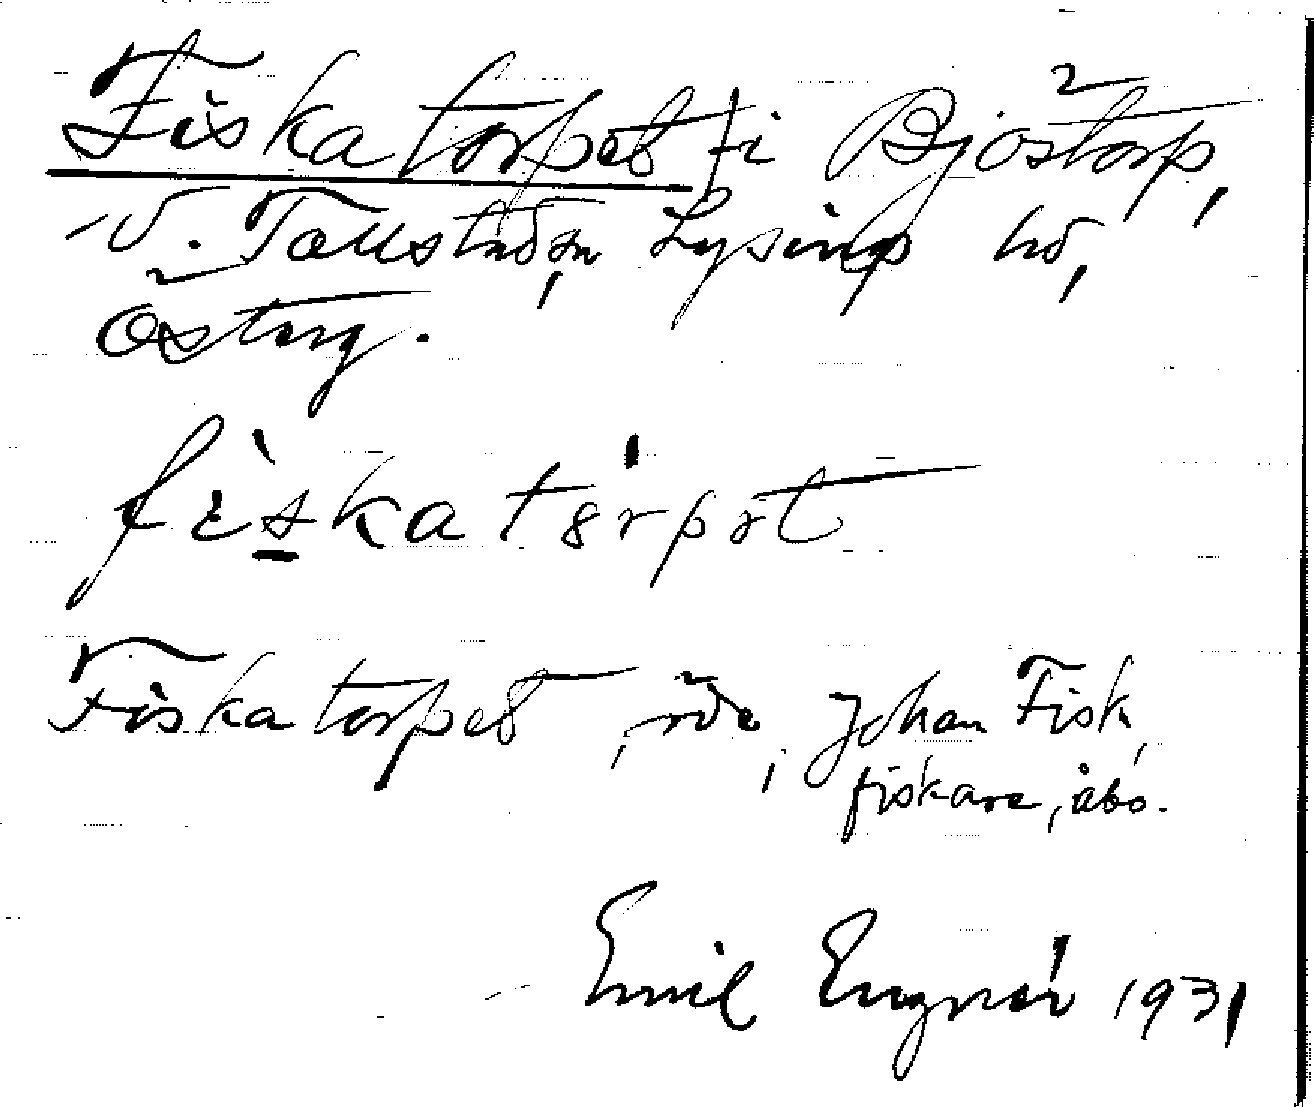 Fiskatorpet † i Bjöstorp,
V. Tollstad sn, Lysings hd,
Österg.
fìskatórpət
Fiskatorpet, rde, Johan Fisk,
fiskare, åbo.
Emil Engnér 1931